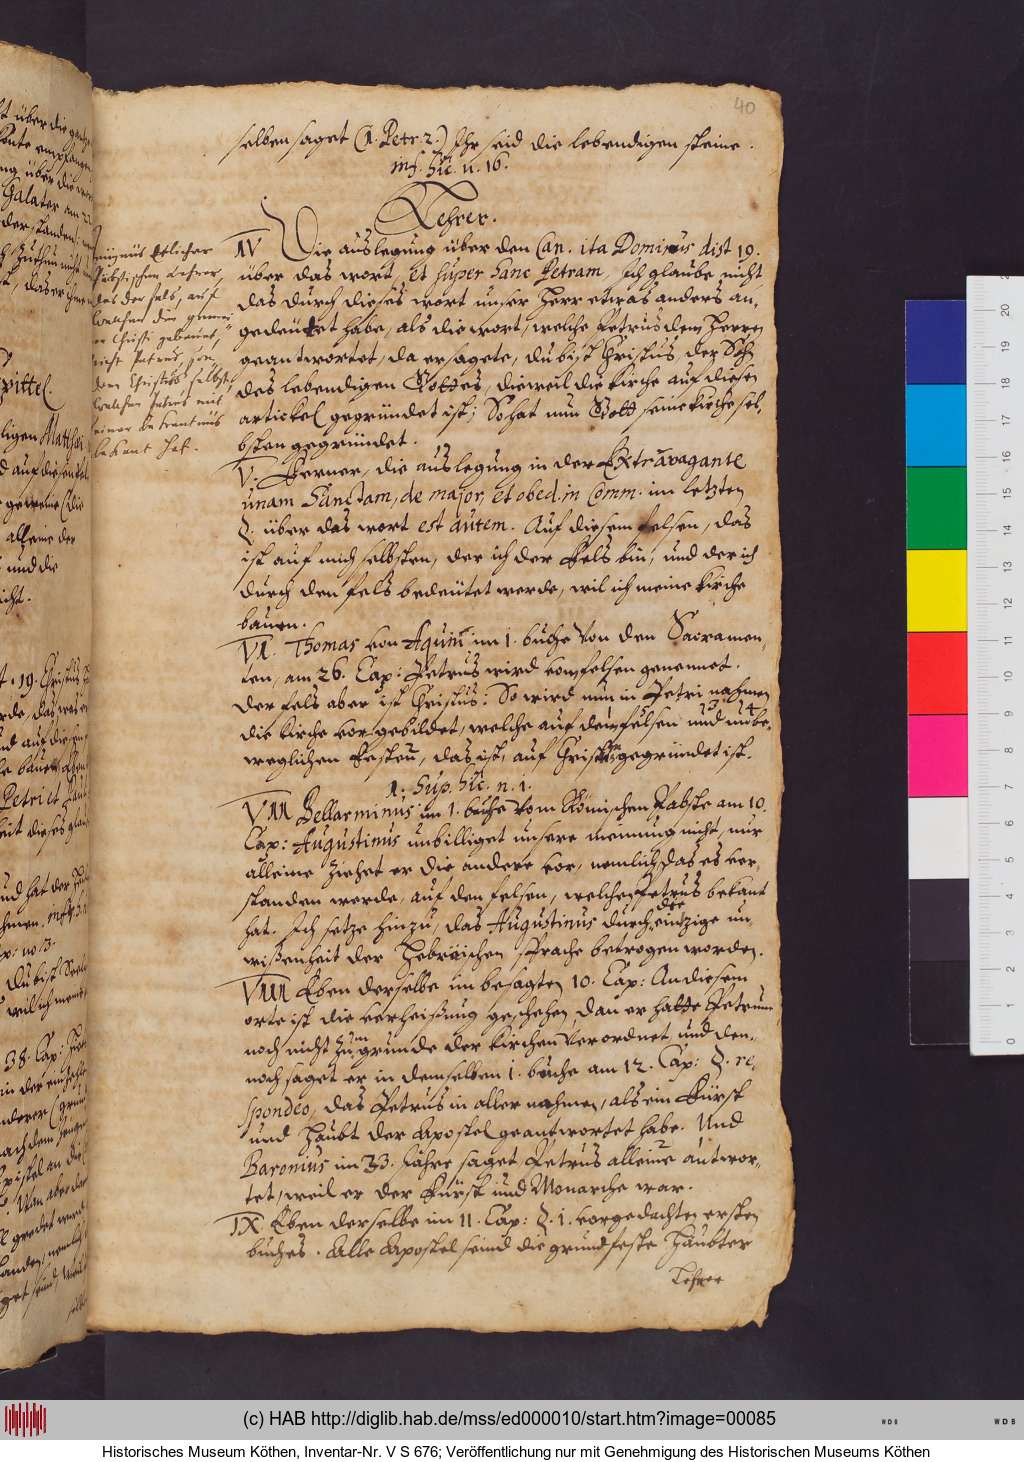 40
selben saget (1. Petr. 2.) Ihr seid die lebendigen steine.
inf. hîc. n. 16.
Lehrer.
IV Die auslegung über den Can. ita Dominus dist 19.
über das wort, et super hanc Petram, Ich glaube nicht
das durch dieses wort unser Herr etwas anders an,
gedeutet habe, als die wort, welche Petrus dem Herren
geantwortet, da er sagete, du bist Christus der Sohn
des lebendigen Gottes, dieweil die kirche auf diesen
artickel gegründet ist; So hat nun Gott seine kirche sel,
bsten gegründet.
V. Ferner, die auslegung in der Extravagante
unam Sanctam, de major, et obed. in Comm. im letzten
§. über das wort est autem. Auf diesem felsen, das
ist auf mich selbsten, der ich der Fels bin, und der ich
durch den fels bedeutet werde, wil ich meine kirche
bauen.
VI. Thomas von Aquin im 1. buche Von den Sacramen,
ten, am 26. Cap: Petrus wird vom felsen genennet.
der fels aber ist Christus: So wird nun in Petri nahmen
die kirche vorgebildet, welche auf dem felsen und unbe,
weglichen festen, das ist, auf Christum gegründet ist.
1. sup. hîc. n. 1.
VII Bellarminus im 1. buche Vom Römischen Pabste am 10.
Cap: Augustinus unbilliget unsere meinung nicht, nur
alleine ziehet er die andere vor, nemlich, das es ver,
standen werde, auf den felsen, welchen Petrus bekant
hat. Ich setze hinzu, das Augustinus durch die eintzige un,
wißenheit der Hebräichen sprache betrogen worden.
VIII Eben derselbe im besagten 10. Cap: An diesem
orte ist die verheißung geschehen, dan er hatte Petrum
noch nicht zum grunde der kirchen verordnet, und den,
noch saget er in demselben 1. buche am 12. Cap: §. re,
spondeo, das Petrus in aller nahmen, als ein Fürst
und Haubt der Apostel geantwortet habe. Und
Baronius im 33. Jahre saget Petrus alleine antwor,
tet, weil er der Fürst und Monarche war.
IX Eben derselbe im 11. Cap: §. 1. vorgedachten ersten
buches. Alle Apostel seind die grundfeste Häubter
Lehrer
etlicher
Päbstischen Lehrer,
das der fels, auf
welchen die gemei,
ne Christi gebauet,
nicht Petrus, son,
dern Christus selbst,
welchen Petrus mit
seiner bekantnus
bekant hat.
(c) HAB http://diglib.hab.de/mss/ed000010/start.htm?image=00085
Historisches Museum Köthen, Inventar-Nr. V S 676; Veröffentlichung nur mit Genehmigung des Historischen Museums Köthen